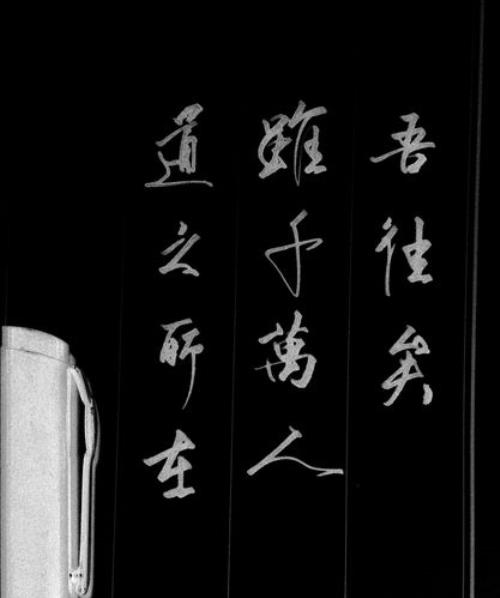 道之所在
雖千萬人
吾往矣